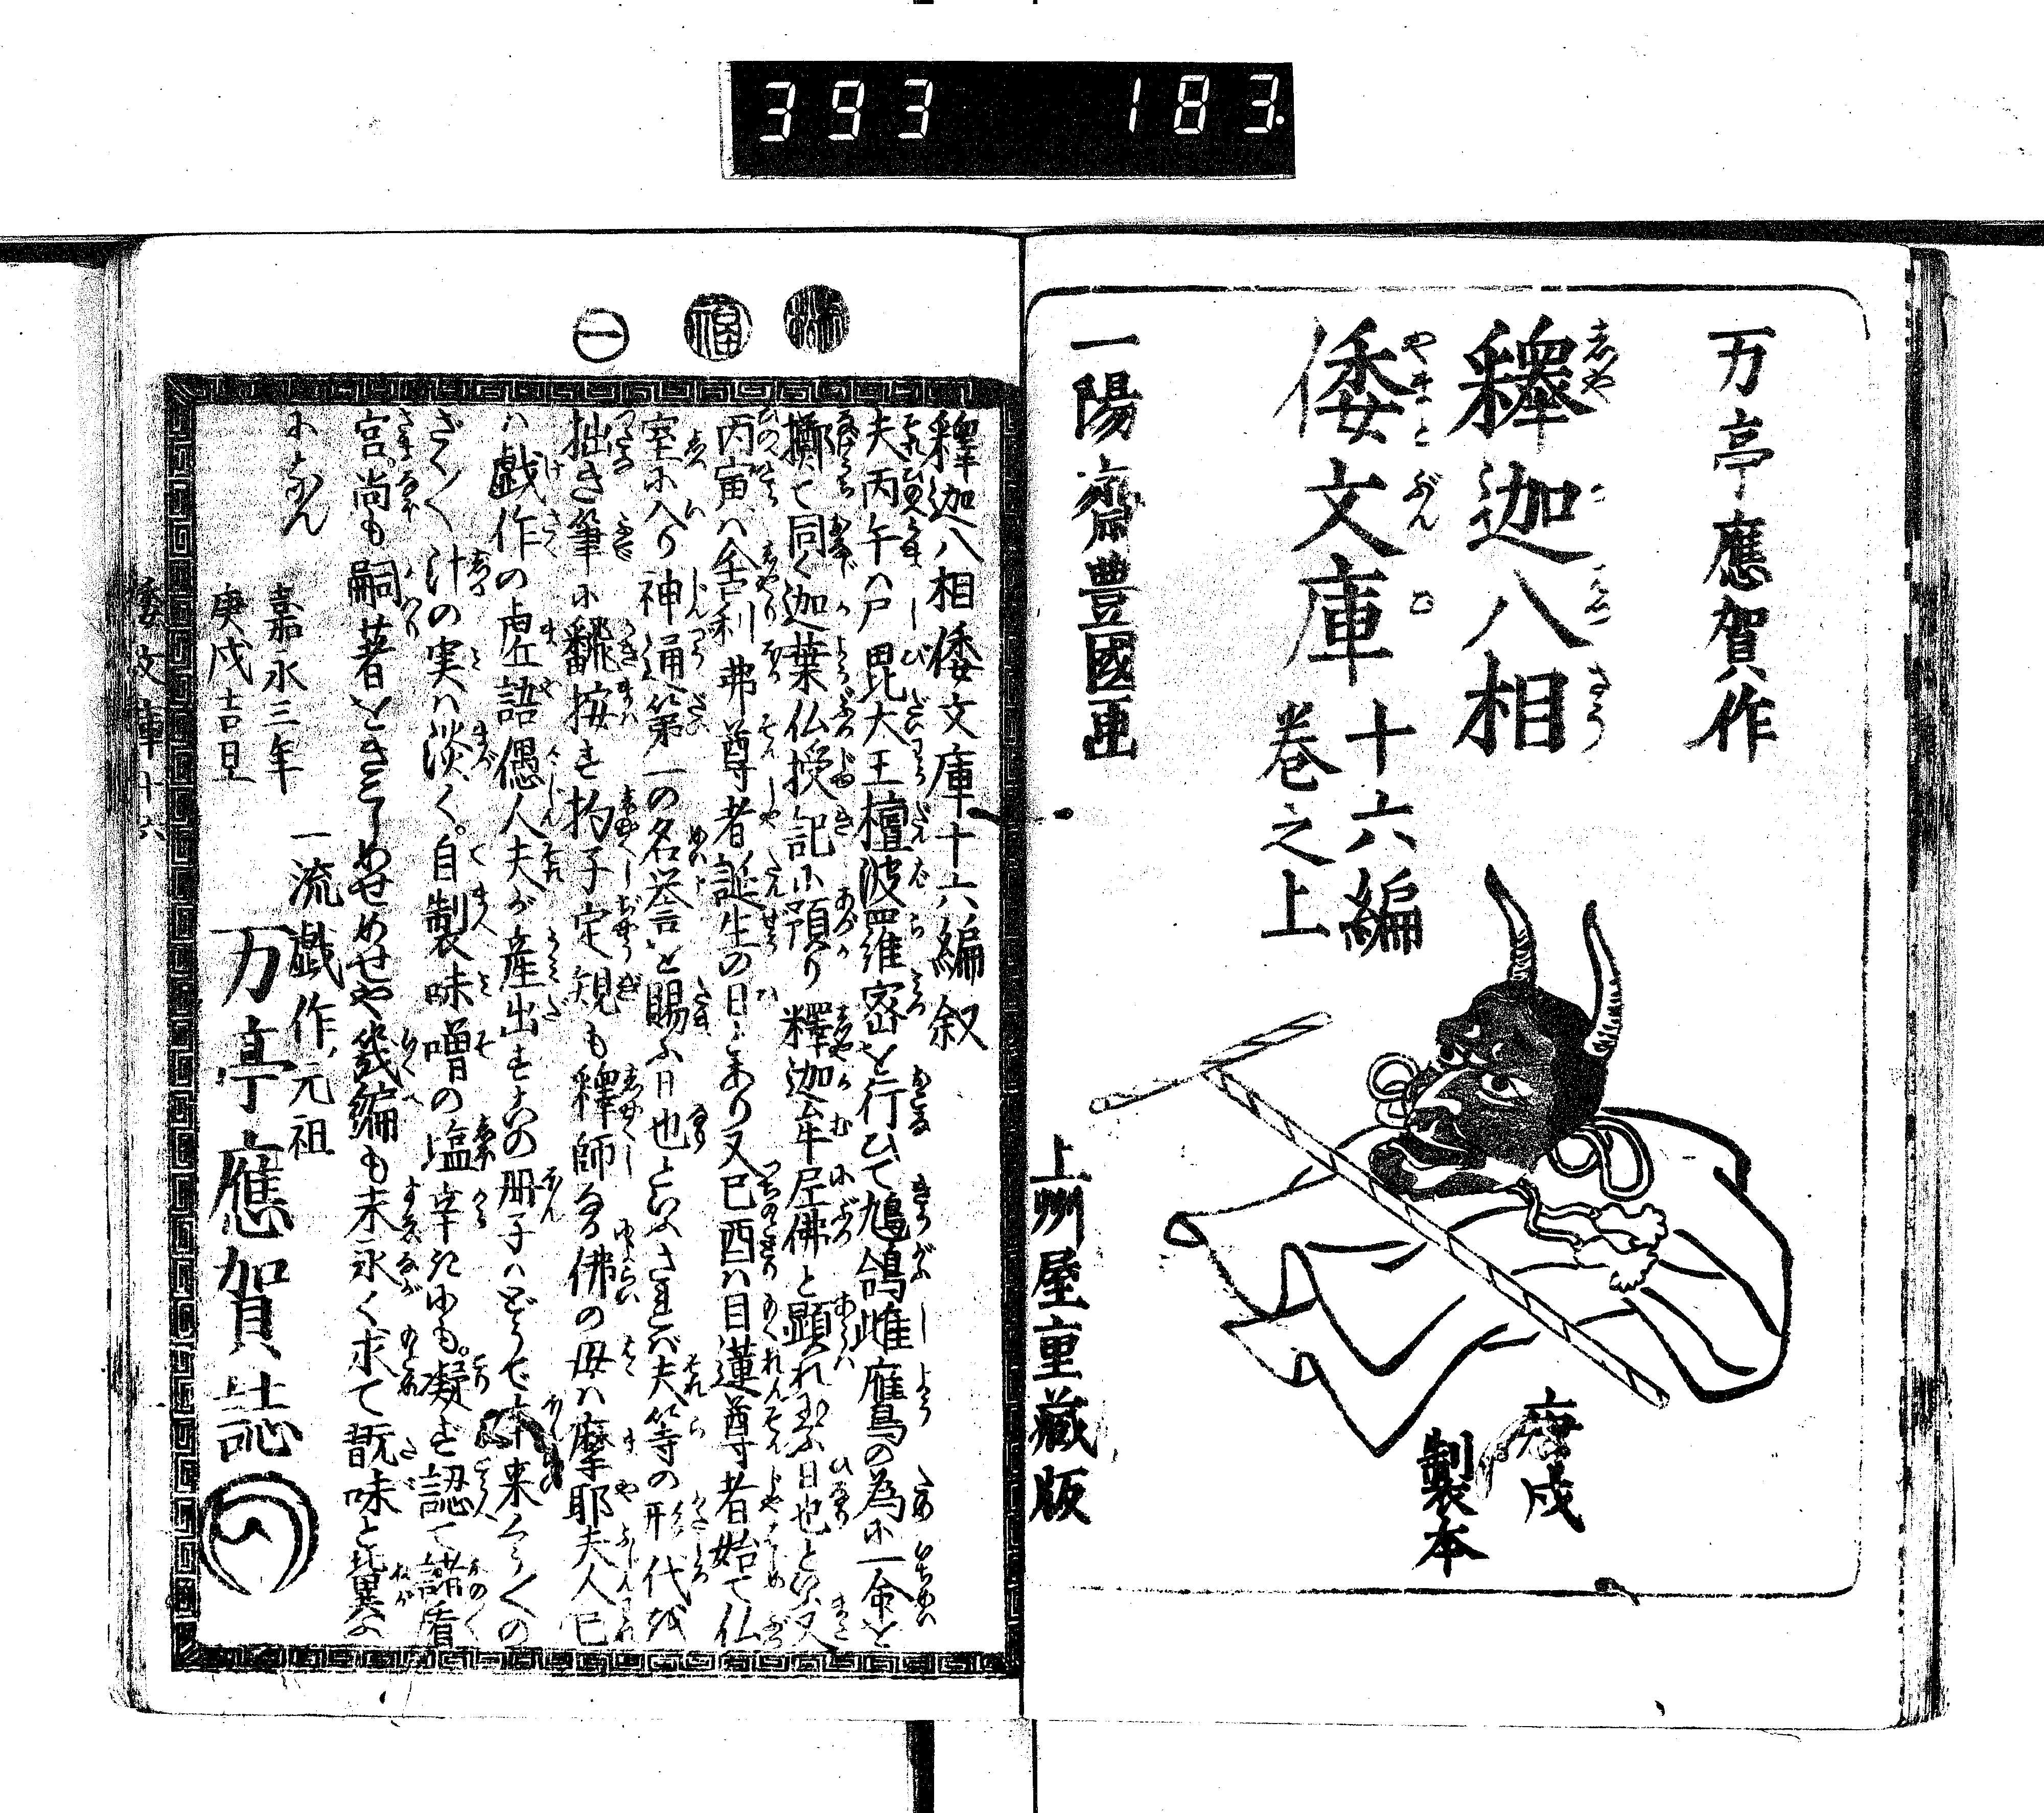 393 183
万亭應賀作
釋迦八相
倭文庫
十六編
巻之上
一陽齋豊國画
上州屋重蔵版
庚戌
製本
福
一
釋迦八相倭文庫十六編叙
夫丙午ハ尸毘大王檀波羅密を行ひて鳩鴿雌鷹の為に一命を
擲て同く迦葉仏授記に預り釋迦牟尼佛と顕れ給ふ日也といふ又
丙寅ハ舎利弗尊者誕生の日とあり又己酉ハ目蓮尊者始て仏
室に入り神通第一の名誉を賜ふ日也といふされバ夫等の形代或
拙き筆に飜按す杓子定規も釋師なる佛の母ハ摩耶夫人已
ハ戯作の虚語偶人夫が産出すこの冊子ハどうで本来くうくの
ざくざく汁の実ハ淡く。自製味噌の塩辛きゆゑも。凝ず認て諸看
官。尚も嗣著をときこしめせめせや幾編も末永く求て既味と異な
にかん
嘉永三年
庚戌吉旦
一流戯作元祖
万亭應賀誌
倭文庫十六